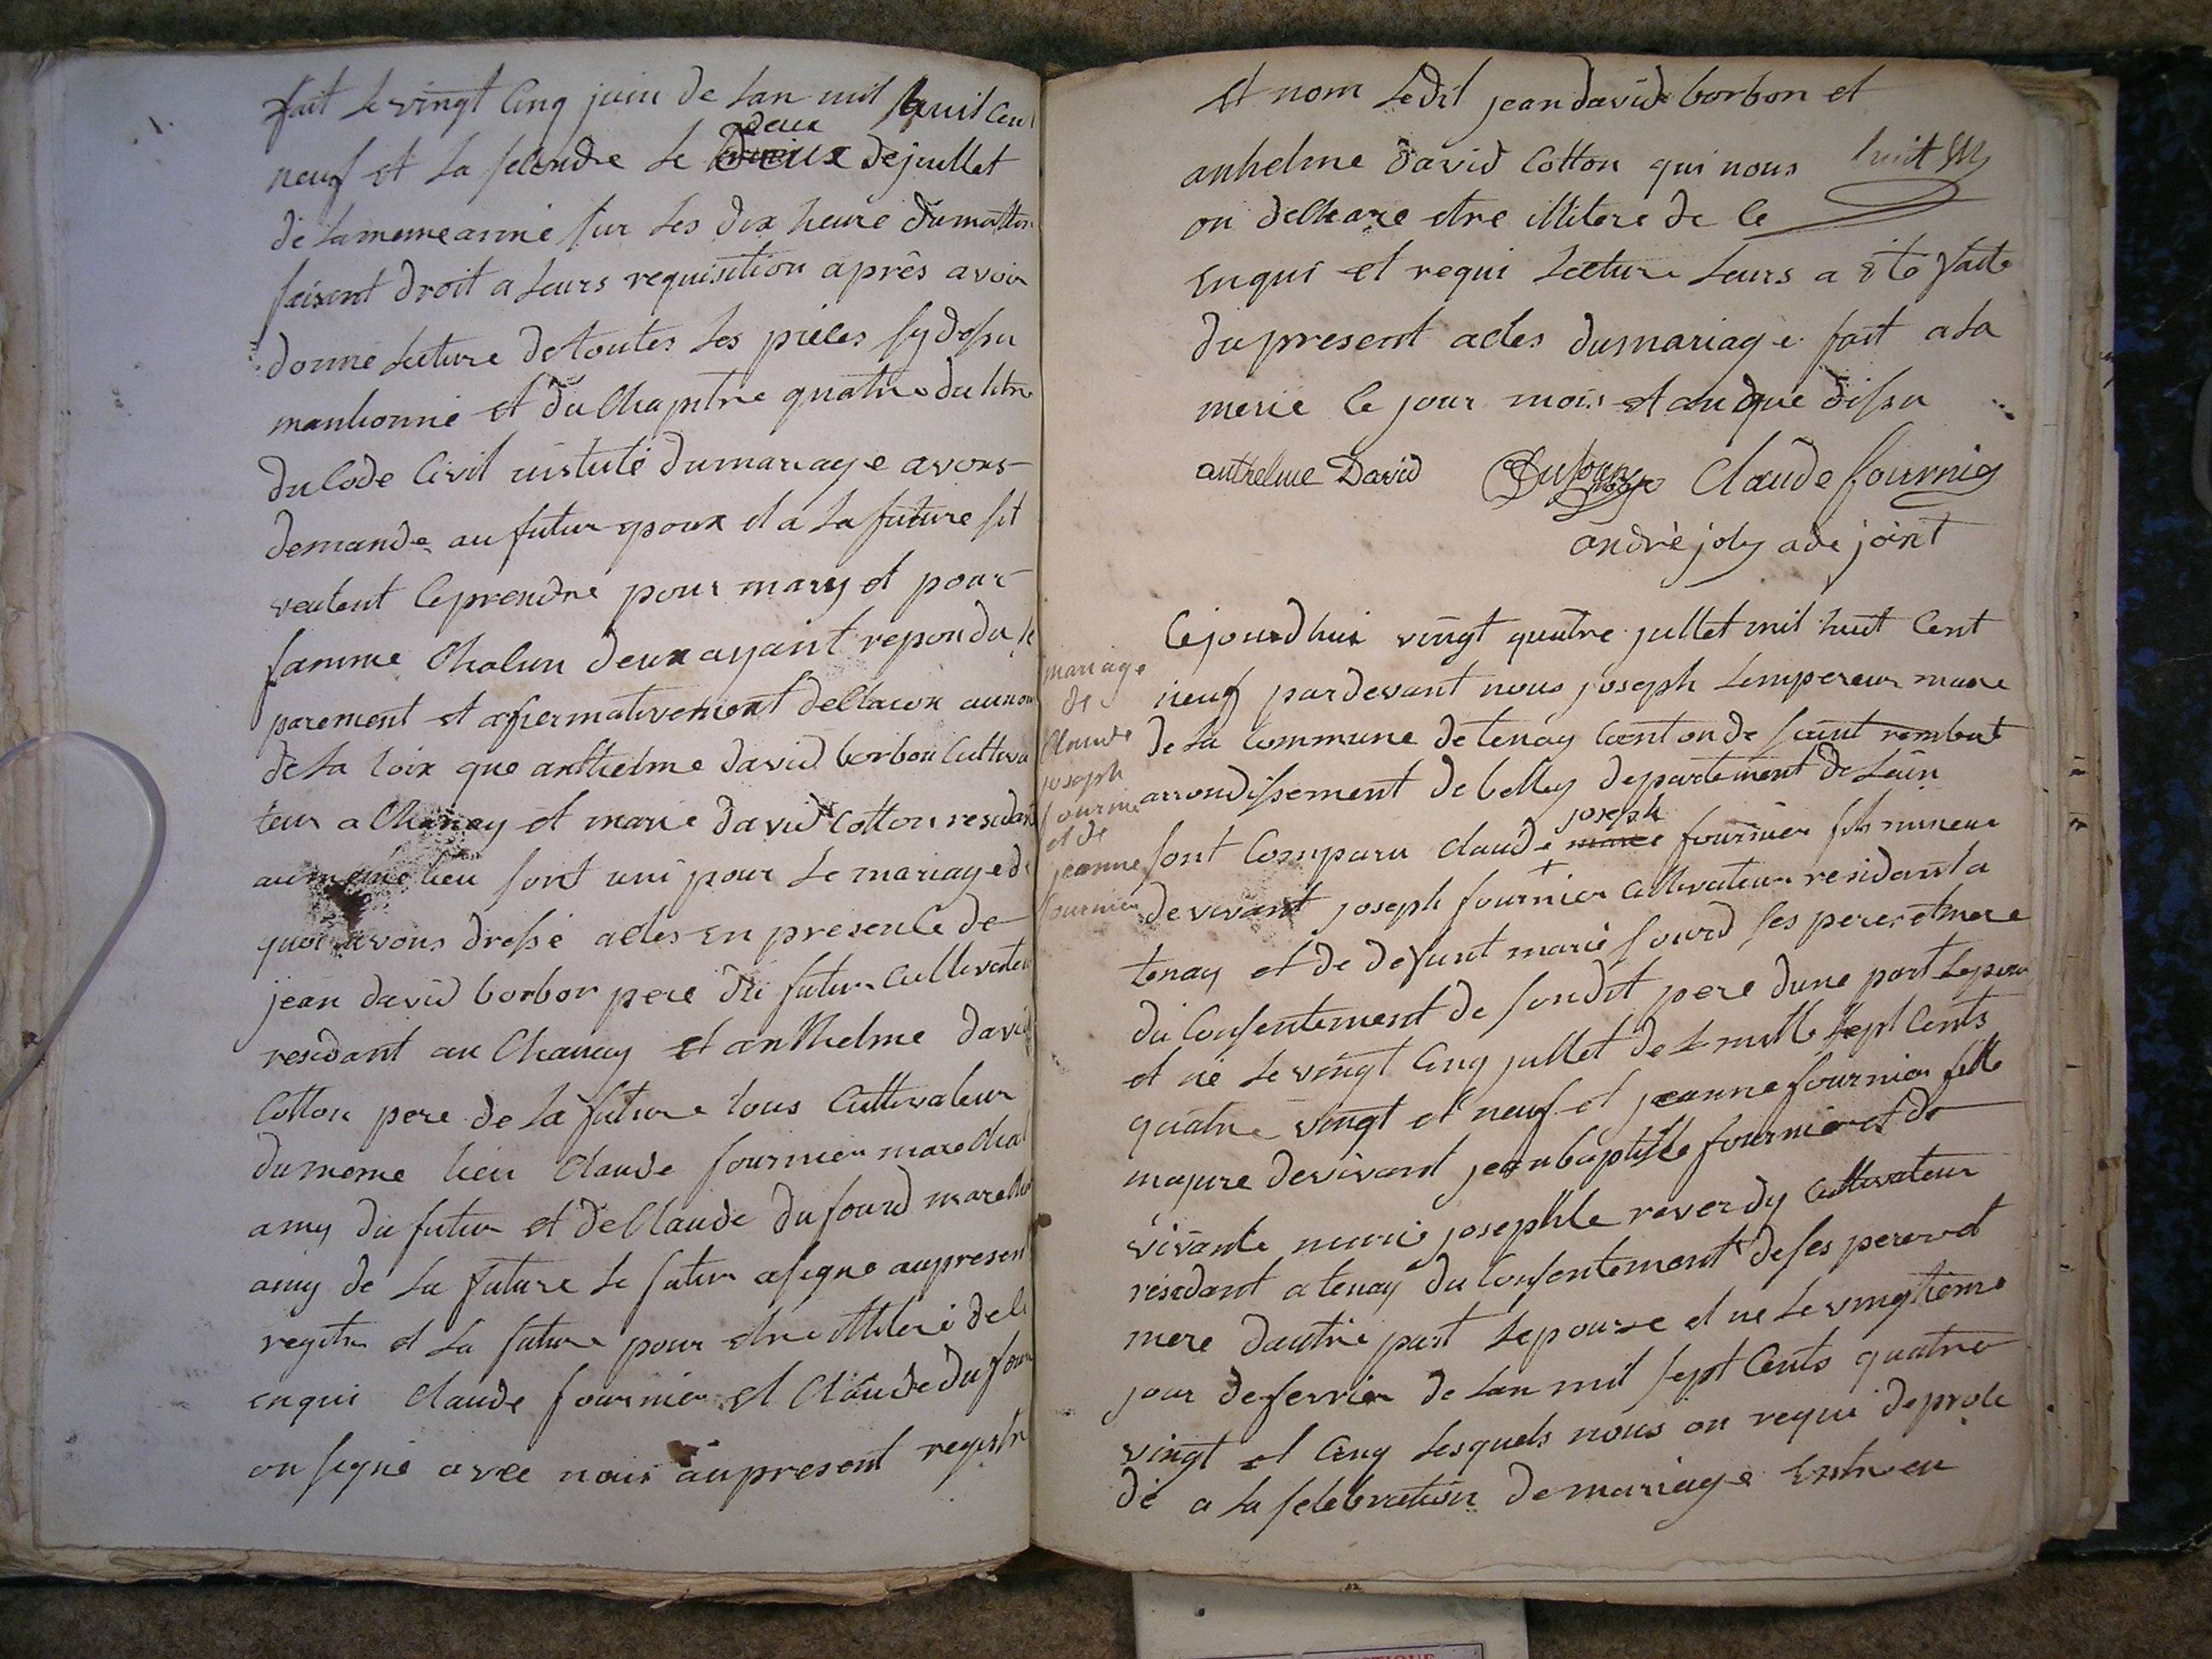 fait le vingt cinq juin de lan mil huit cen
neuf et la seconde le deux de juillet
de la meme anné sur les dix heure du matton
feisent droit a leurs requisition après avoir
donné lecture de toutes les pieces sy desu
manhonné et du Chapitre quatre du titre
du Code Civil intitulé du mariage avons
demande au futur epoux et a la future sil
veulent ce prendre pour mary et pour
famme Chalun deux ayant repondu se
parement et afermativement declaron au nom
de la loix que anthelme david borbon Cultiva
teur a Chanay et marie david Cotton residant
au meme lieu sont uni pour le mariage de
quoi avons dressé actes en presence de
jean david borbon pere du futur Cultivateur
residant au Chanay et anthelme david
Cotton pere de la future tous Cultivateur
du meme lieu Claude fournier marechal
amy du futur et de Claude dufourd marechal
amy de la future le futur a signe au present
regitre et la future pour etre illiteré de ce
enqui Claude fournier et Claude dufour
on signé avec nous au present registre
et nom ledit jean david borbon et
anthelme david Cotton qui nous
on delhare etre illitere de ce
enqui et requi lecture leurs a été faite
du present actes du mariage fait a la
merie ce jour mois et an que dessu
anthelme David Dufour Claude fournier
andré joly adejoint
mariage
de
Claude
joseph
fournie
et de
jeanne
fournier
Cejourdhui vingt quatre jullet mil huit Cent
neuf par devant nous joseph Lempereur maire
de la Commune de tenay Canton de saint rambert
arrondissement de belley departement de Lain
joseph
sont Comparu Claude marie fournier fils mineur
de vivant joseph fournier Cultivateur residant a
tenay et de defunt marie sourd ses pere et mere
du Consentement de son dit pere dune part lepoux
et né le vingt Cinq jullet de L mille sept Cents
quatre vingt et neuf et jeanne fournier fille
majure de vivant jean baptiste fournier et de
vivante marie josephte reverdy Cultivateur
résidant a tenay du Consentement de ses pere et
mere dautre part lepouse et né le vingtieme
jour de fevrier de lan mil sept Cents quatre
vingt et Cinq lesquels nous on requi de proce
dé a la selebration de mariage entre eu